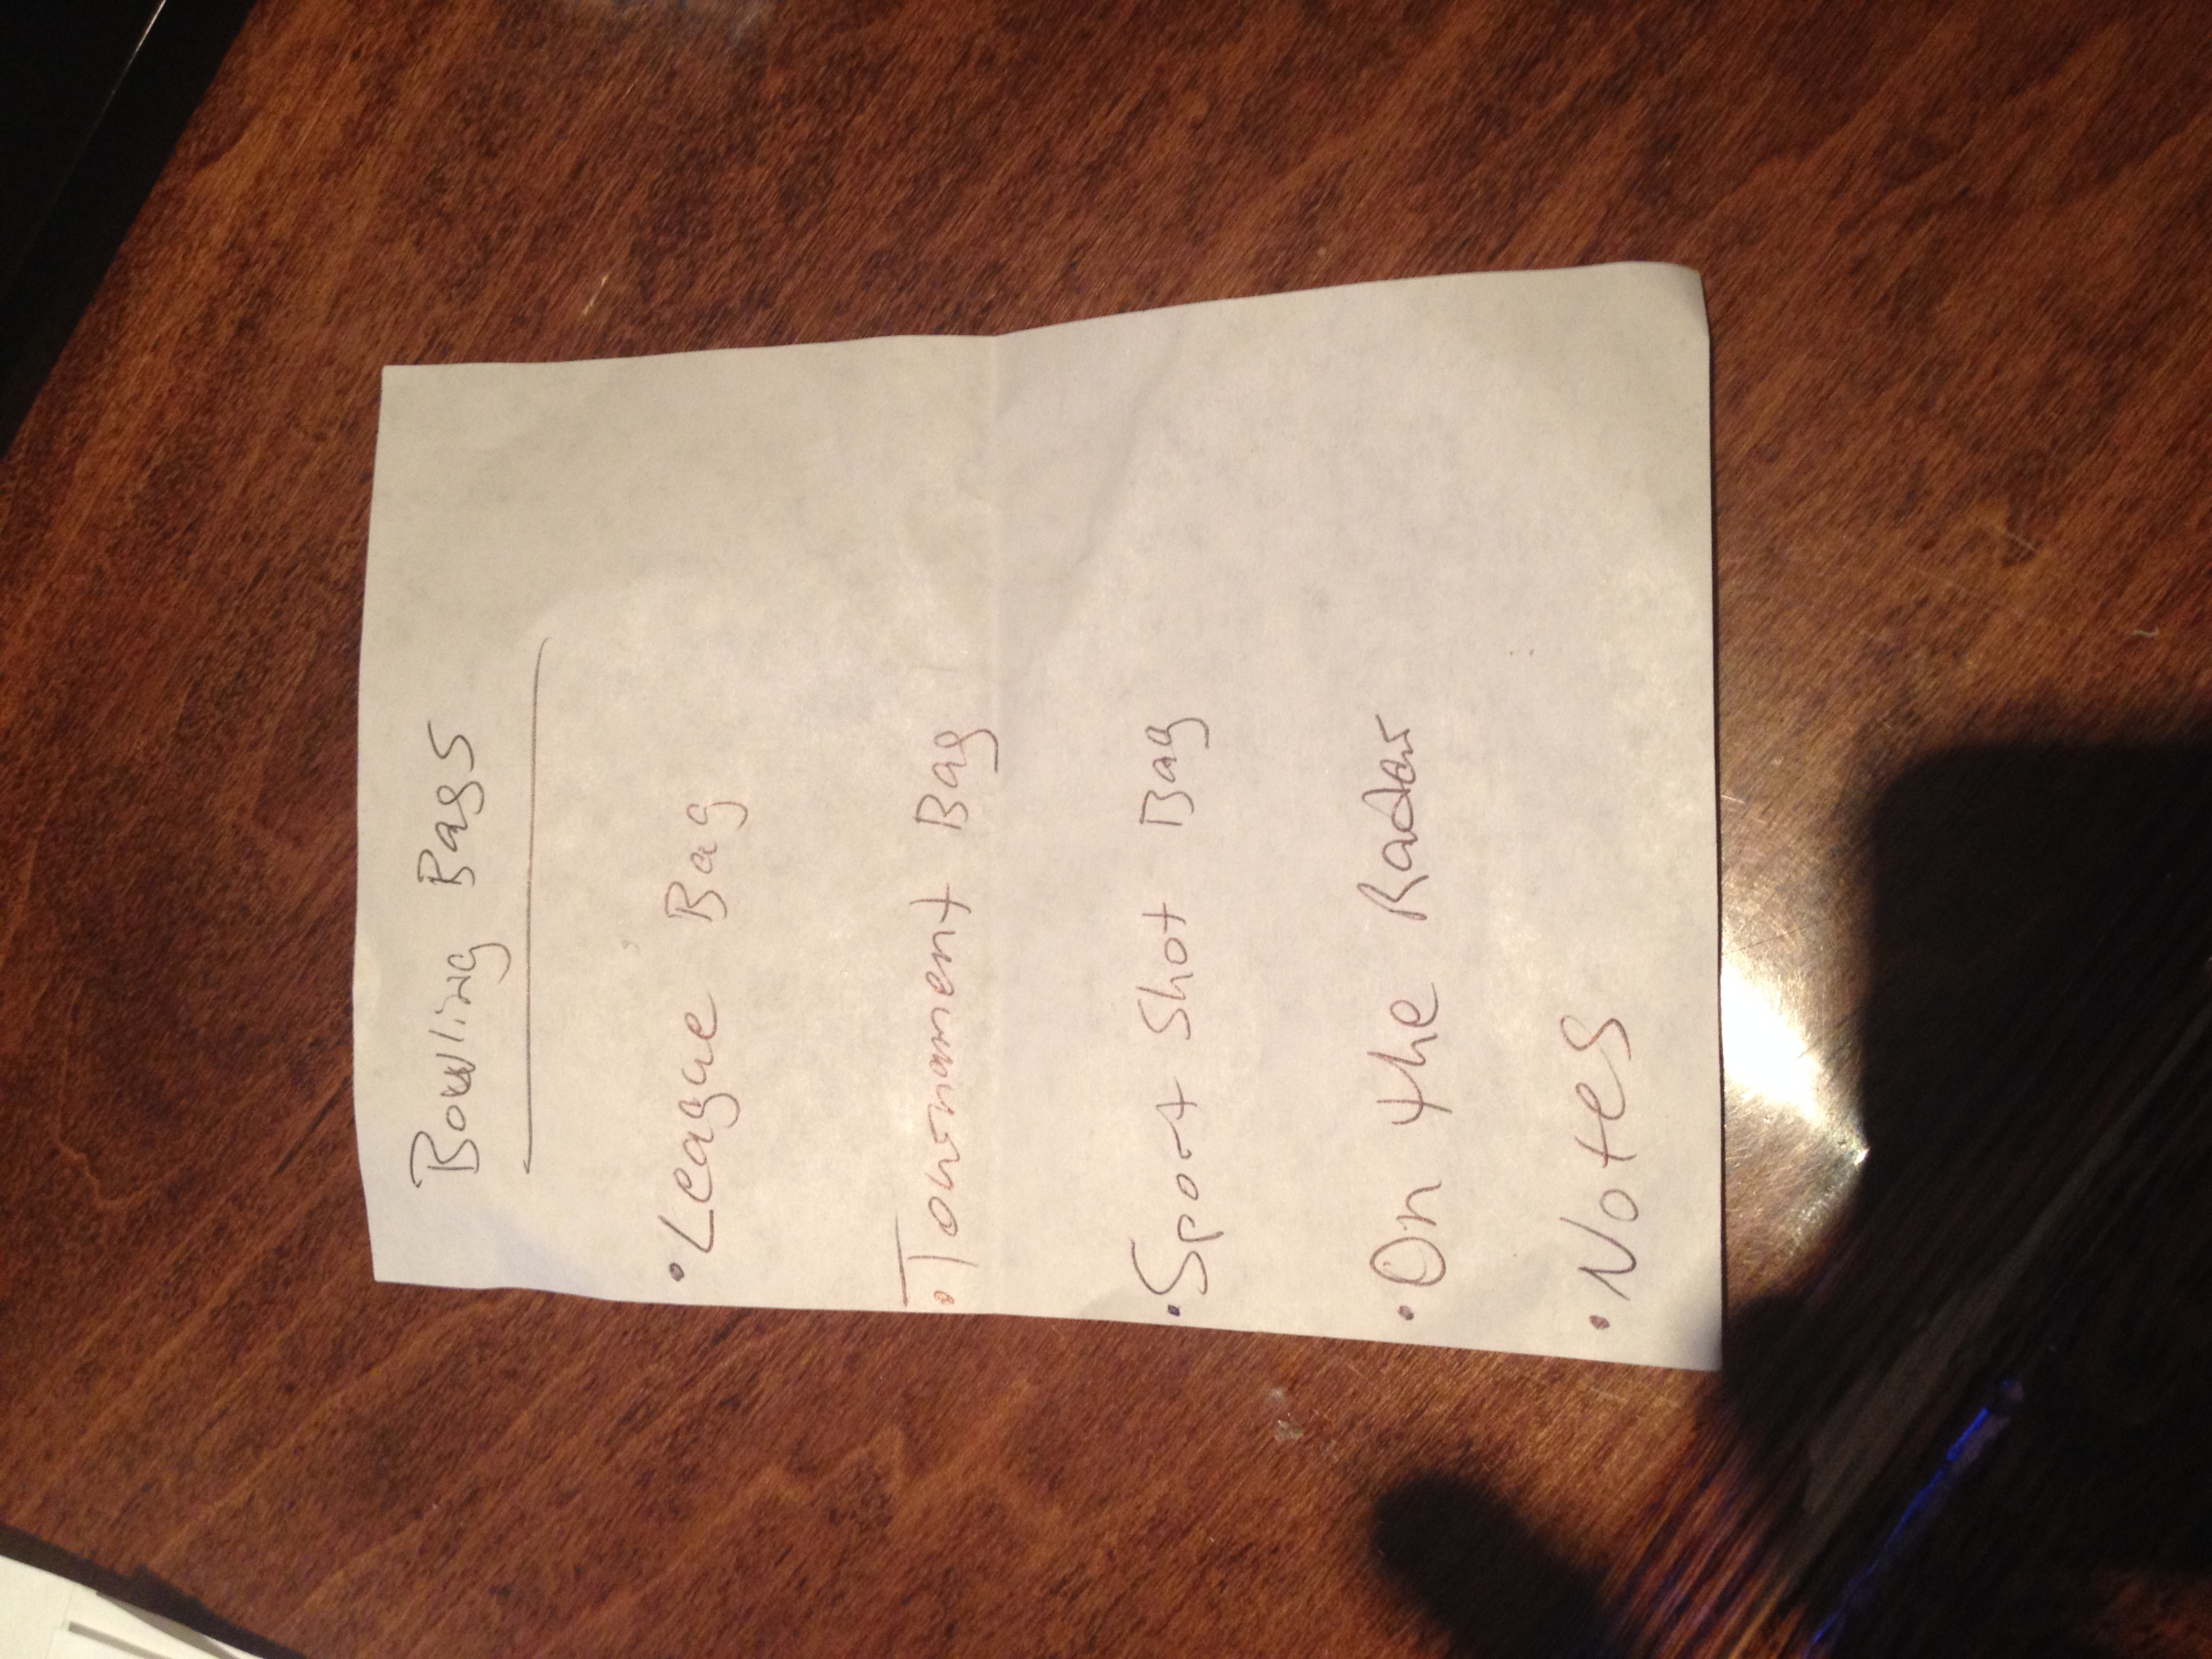 Bowling Bags
• League Bag
• Tournament Bag
• Sport Shot Bag
• On the Radar
• Notes